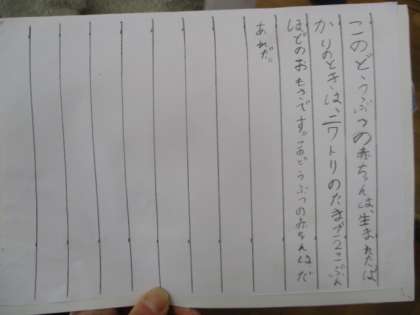 このどうぶつの赤ちゃんは、生まれたば
かりのときは、ニワトリのたまご2こぶん
ほどのおもさです。このどうぶつの赤ちゃんはだ
あれだ。